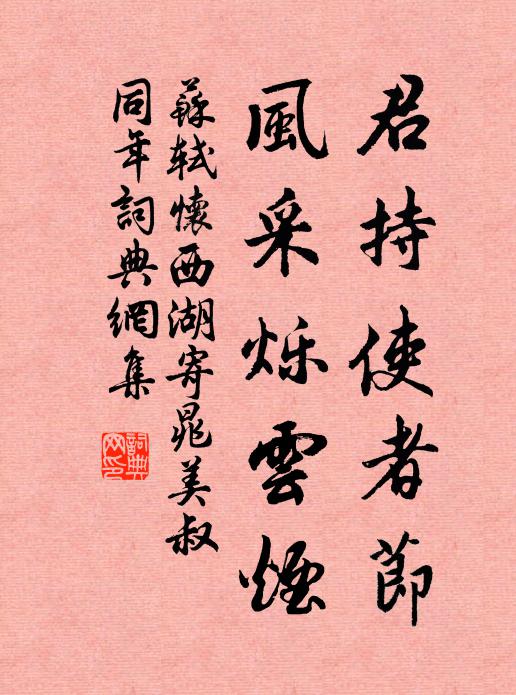 君持使者節
風采烁雲煙
蘇軾懷西湖寄晁美叔
同年詞典網集
詞典網印